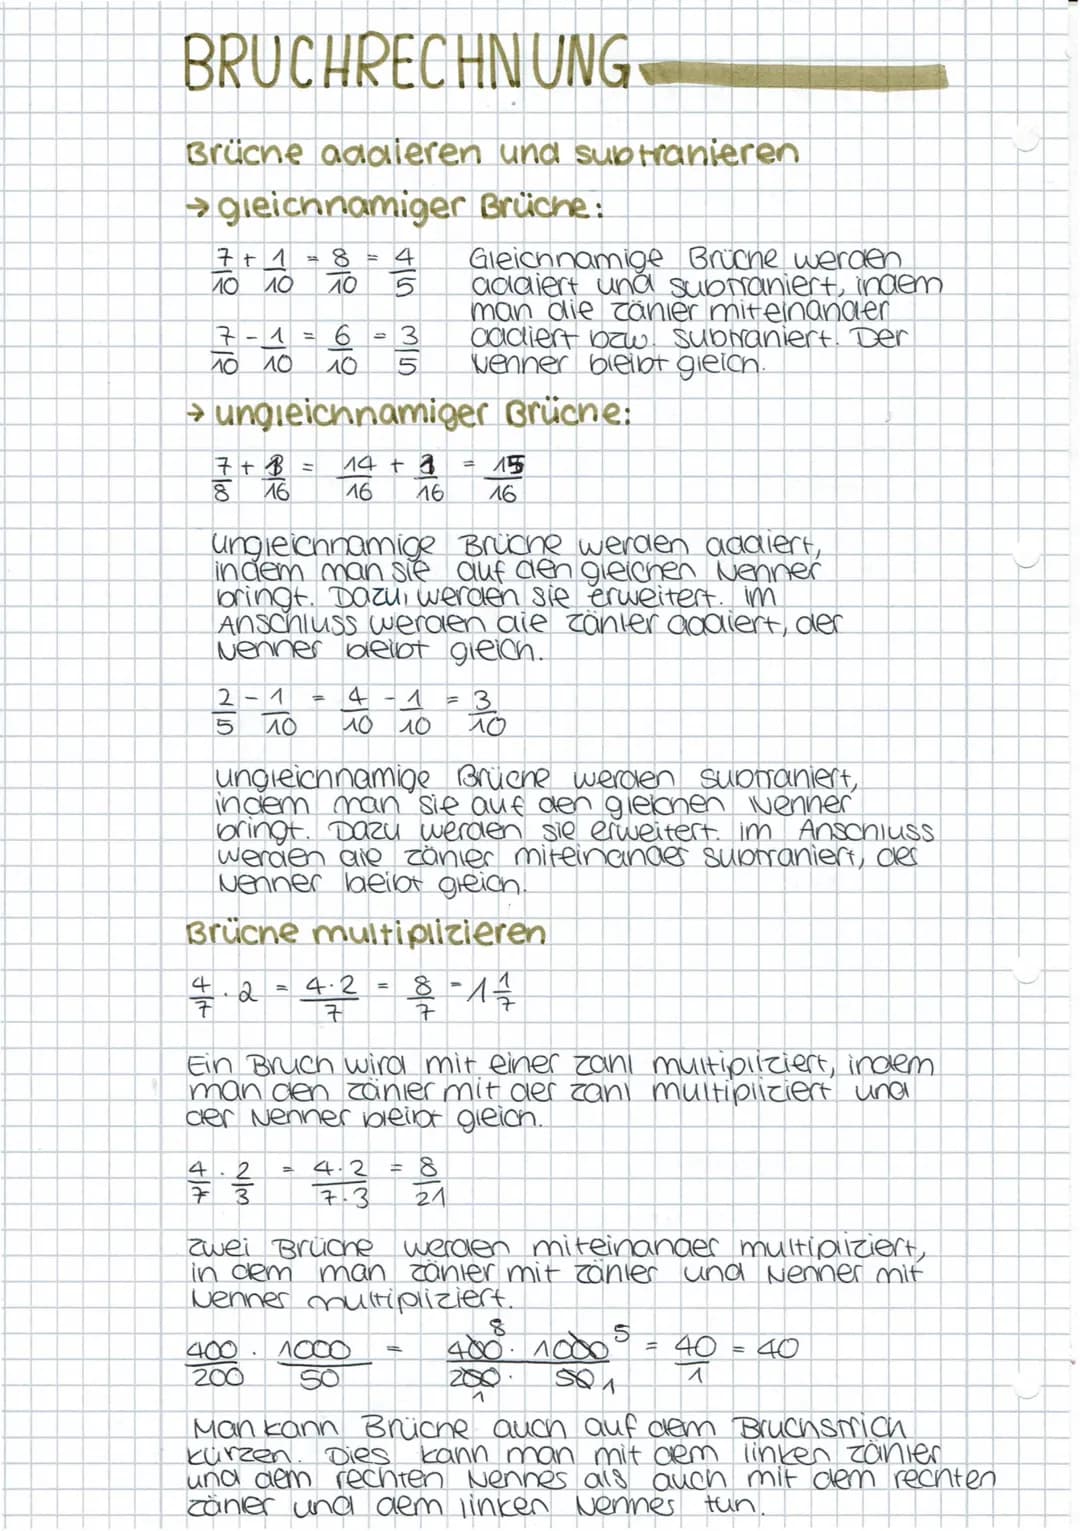 BRUCHRECHNUNG
Brüche addieren und subtrahieren
→ gleichnamiger Brüche:
7/10 + 1/10 = 8/10 = 4/5
7/10 - 1/10 = 6/10 = 3/5
Gleichnamige Brüche werden
addiert und subtrahiert, indem
man die Zähler miteinander
addiert bzw. subtrahiert. Der
Nenner bleibt gleich.
→ ungleichnamiger Brüche:
7/8 + 1/16 = 14/16 + 1/16 = 15/16
Ungleichnamige Brüche werden addiert,
indem man sie auf den gleichen Nenner
bringt. Dazu, werden sie erweitert. Im
Anschluss werden die Zähler addiert, der
Nenner bleibt gleich.
2/5 - 1/10 = 4/10 - 1/10 = 3/10
Ungleichnamige Brüche werden subtrahiert,
indem man sie auf den gleichen Nenner
bringt. Dazu werden sie erweitert. Im Anschluss
werden die Zähler miteinander subtrahiert, der
Nenner beibt gleich.
Brüche multiplizieren
4/7 · 2 = 4·2/7 = 8/7 = 1 1/7
Ein Bruch wird mit einer Zahl multipliziert, indem
man den Zähler mit der Zahl multipliziert und
der Nenner bleibt gleich.
4/7 · 2/3 = 4·2/7·3 = 8/21
Zwei Brüche werden miteinander multipliziert,
in dem man Zähler mit Zähler und Nenner mit
Nenner multipliziert.
400/200 · 1000/50 = 400 8 · 1000 5 / 200 1 · 50 1 = 40/1 = 40
Man kann Brüche auch auf dem Bruchstrich
kürzen. Dies kann man mit dem linken Zähler
und dem rechten Nenner als auch mit dem rechten
Zäher und dem linken Nenner tun.